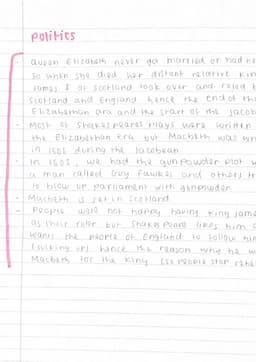 Politics
- Queen Elizabeth never got married or had
so when she died her distant relative
James I of Scotland took over and ruled
Scotland and England hence the end of th
Elizabethan era and the start of the Jacob
- Most of Shakespeares plays were written
the Elizabethan Era but Macbeth was
in during the Jacobean
- In 1605, we had the gunpowder plot w
a man called Guy Fawkes and others
to blow up parliament with gunpowder
- Macbeth is set in Scotland
- People were not happy having King Jame
as their ruler but Shakespeare likes him
wants the people of England to follow him
hence the reason why he
Macbeth for the King people stop